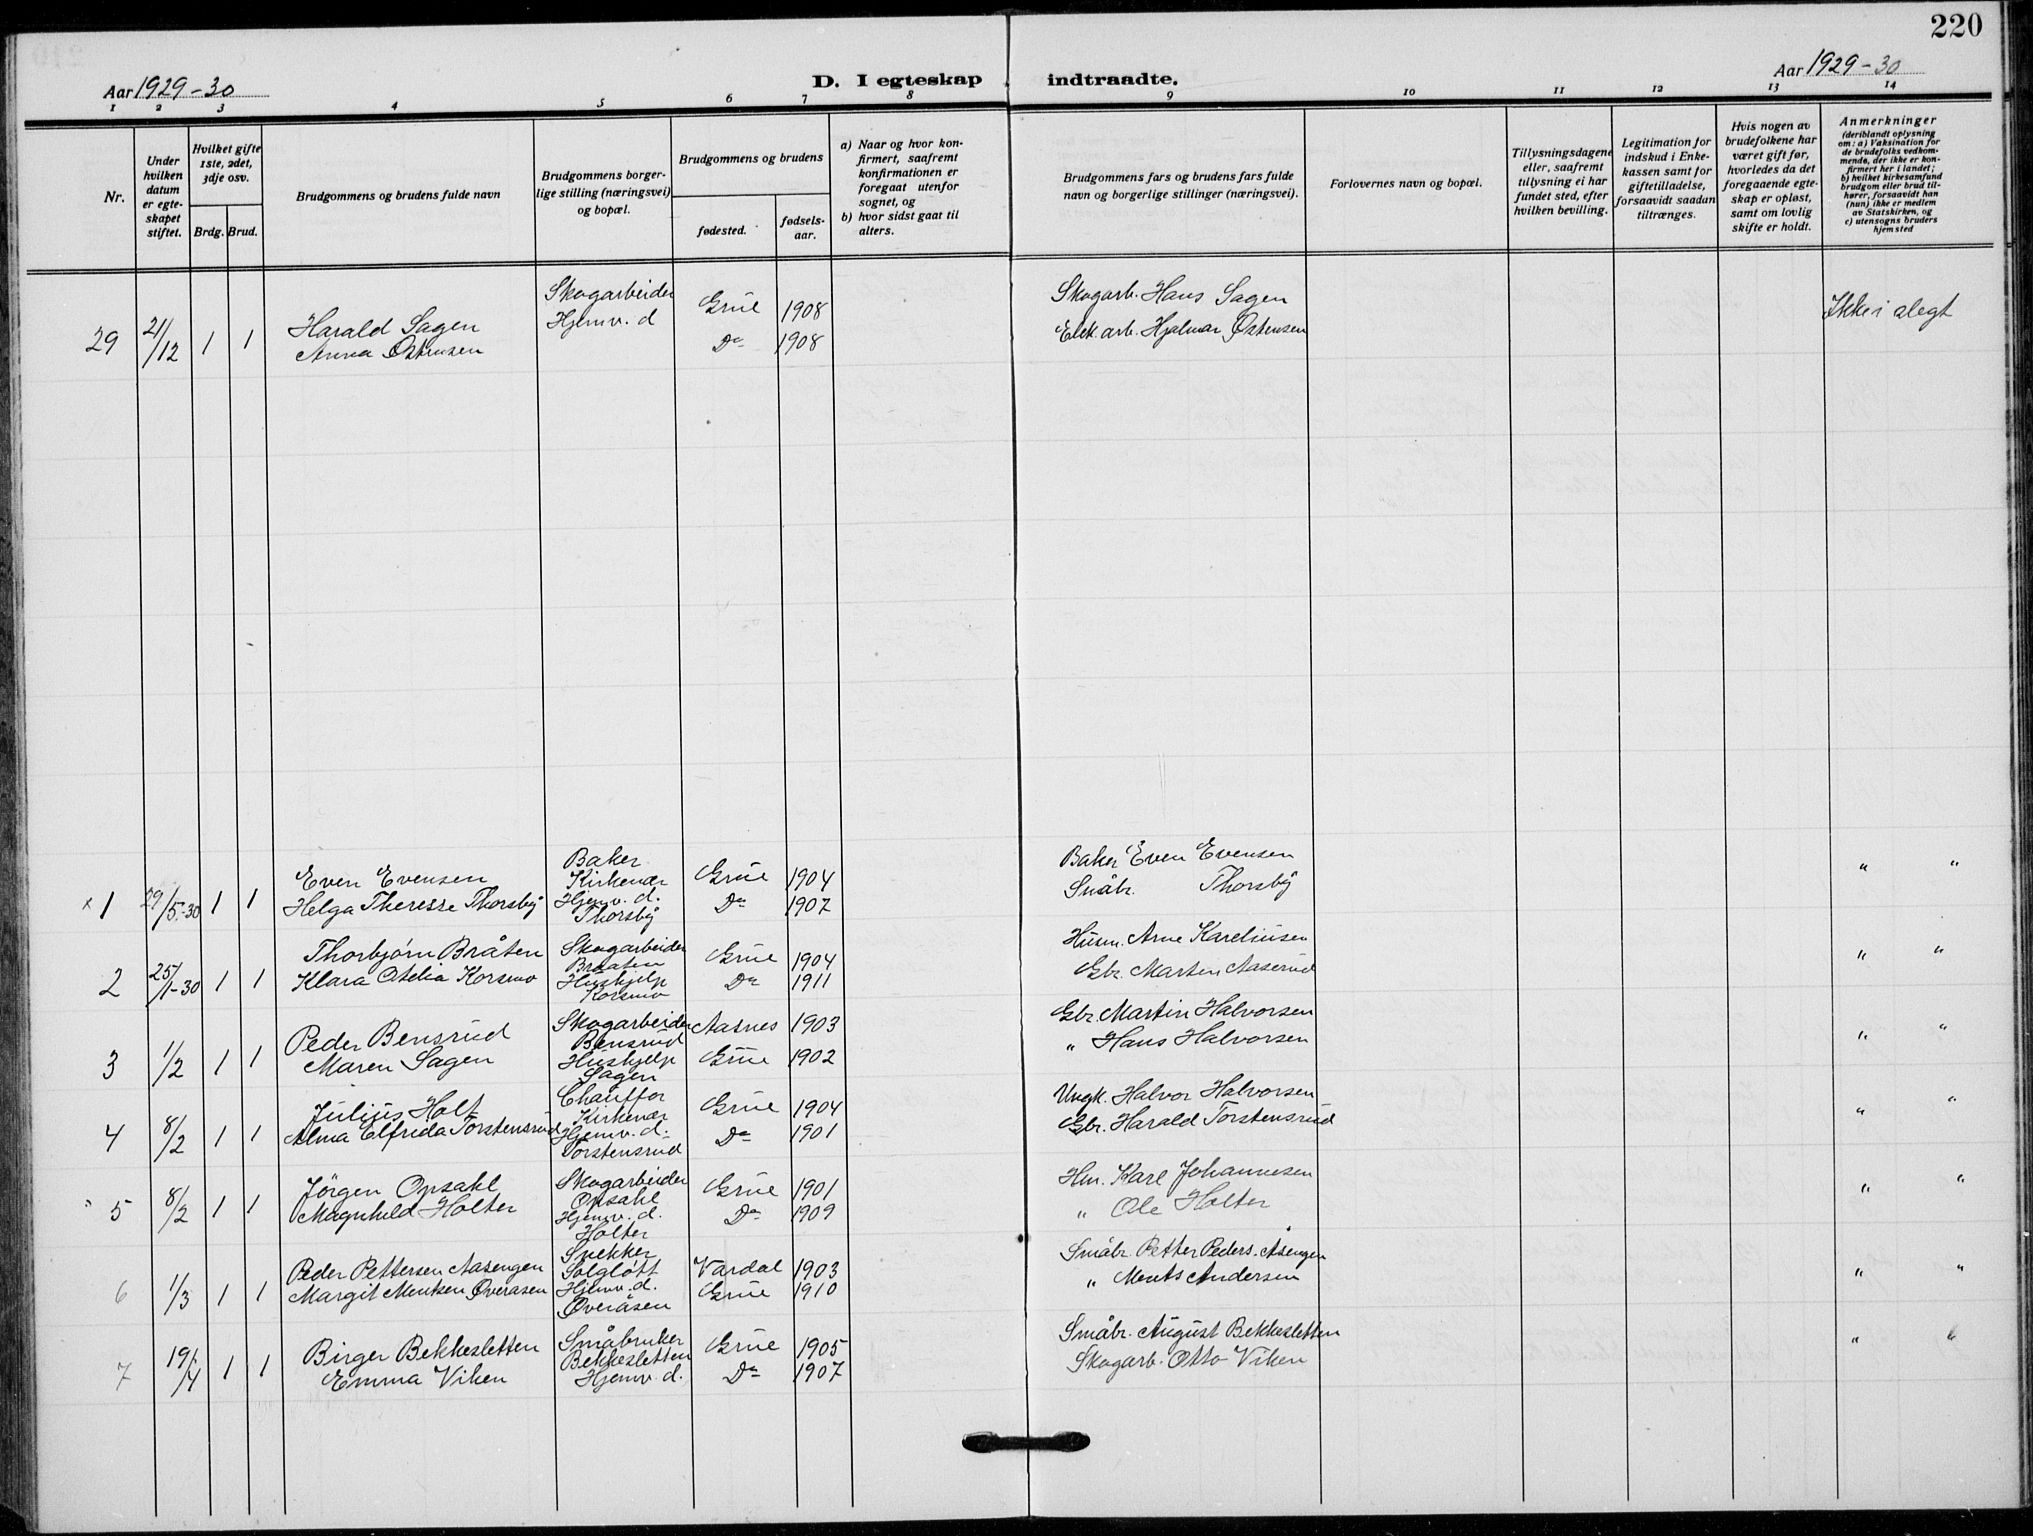 220
Aar 1929-30
D. I egteskap indtraadte.
Aar 1929-30
1 2 3 4 5 6 7 8 9 10 11 12 13 14
Nr.
Under hvilken datum er egteskapet stiftet.
Hvilket gifte 1ste, 2det, 3dje osv.
Brdg. Brud.
Brudgommens og brudens fulde navn
Brudgommens borgerlige stilling (næringsvei) og bopæl.
Brudgommens og brudens
fødested.
fødselsaar.
a) Naar og hvor konfirmert, saafremt konfirmationen er foregaat utenfor sognet, og
b) hvor sidst gaat til alters.
Brudgommens fars og brudens fars fulde navn og borgerlige stillinger (næringsvei).
Forlovernes navn og bopæl.
Tillysningsdagene eller, saafremt tillysning ei har fundet sted, efter hvilken bevilling.
Legitimation for indskud i Enkekassen samt for giftetilladelse, forsaavidt saadan tiltrænges.
Hvis nogen av brudefolkene har været gift før, hvorledes da det foregaaende egteskap er opløst, samt om lovlig skifte er holdt.
Anmerkninger
(deriblandt oplysning om: a) Vaksination for de brudefolks vedkommende, der ikke er konfirmert her i landet; b) hvilket kirkesamfund brudgom eller brud tilhører, forsaavidt han (hun) ikke er medlem av Statskirken, og c) utensogns bruders hjemsted
29 21/12 1 1 Harald Sagen Skogarbeider Grue 1908 Skogarb. Hans Sagen Ikke i slegt
Anna Østensen Hjemv. d Do 1908 Elek. arb. Hjalmar Østensen
x 1 29/5-30 1 1 Even Evensen Baker Kirkenær Grue 1904 Baker Even Evensen " "
Helga Theresse Thorsby Hjemv. d. Thorsby Do 1907 Småbr. Thorsby
2 25/1-30 1 1 Thorbjørn Bråten Skogarbeider Braaten Grue 1904 Husm. Arne Kareliusen " "
Klara Otelia Korsmo Hushjelp Korsmo Do 1911 Gbr. Marten Aaserud
3 1/2 1 1 Peder Bensrud Skogarbeider Bensrud Aasnes 1903 Gbr. Martin Halvorsen " "
Maren Sagen Hushjelp Sagen Grue 1902 " Hans Halvorsen
4 8/2 1 1 Julius Holt Chauffør Kirkenær Grue 1904 Ungk. Halvor Halvorsen " "
Alma Elfrida Torstensrud Hjemv. d. Torstensrud Do 1901 Gbr. Harald Torstensrud
5 8/2 1 1 Jörgen Opsahl Skogarbeider Opsahl Grue 1901 Hm. Karl Johannesen " "
Magnhild Holter Hjemv. d. Holter Do 1909 " Ole Holter
6 1/3 1 1 Peder Pettersen Aasengen Snekker Solgløtt Vardal 1903 Småbr. Petter Peders. Åsengen " "
Margit Mentsen Øveraasen Hjemv. d. Øveråsen Grue 1910 " Ments Andersen
7 19/4 1 1 Birger Bekkesletten Småbruker Bekkesletten Grue 1905 Småbr. August Bekkesletten " "
Emma Viken Hjemv. d. Do 1907 Skogarb. Otto Viken